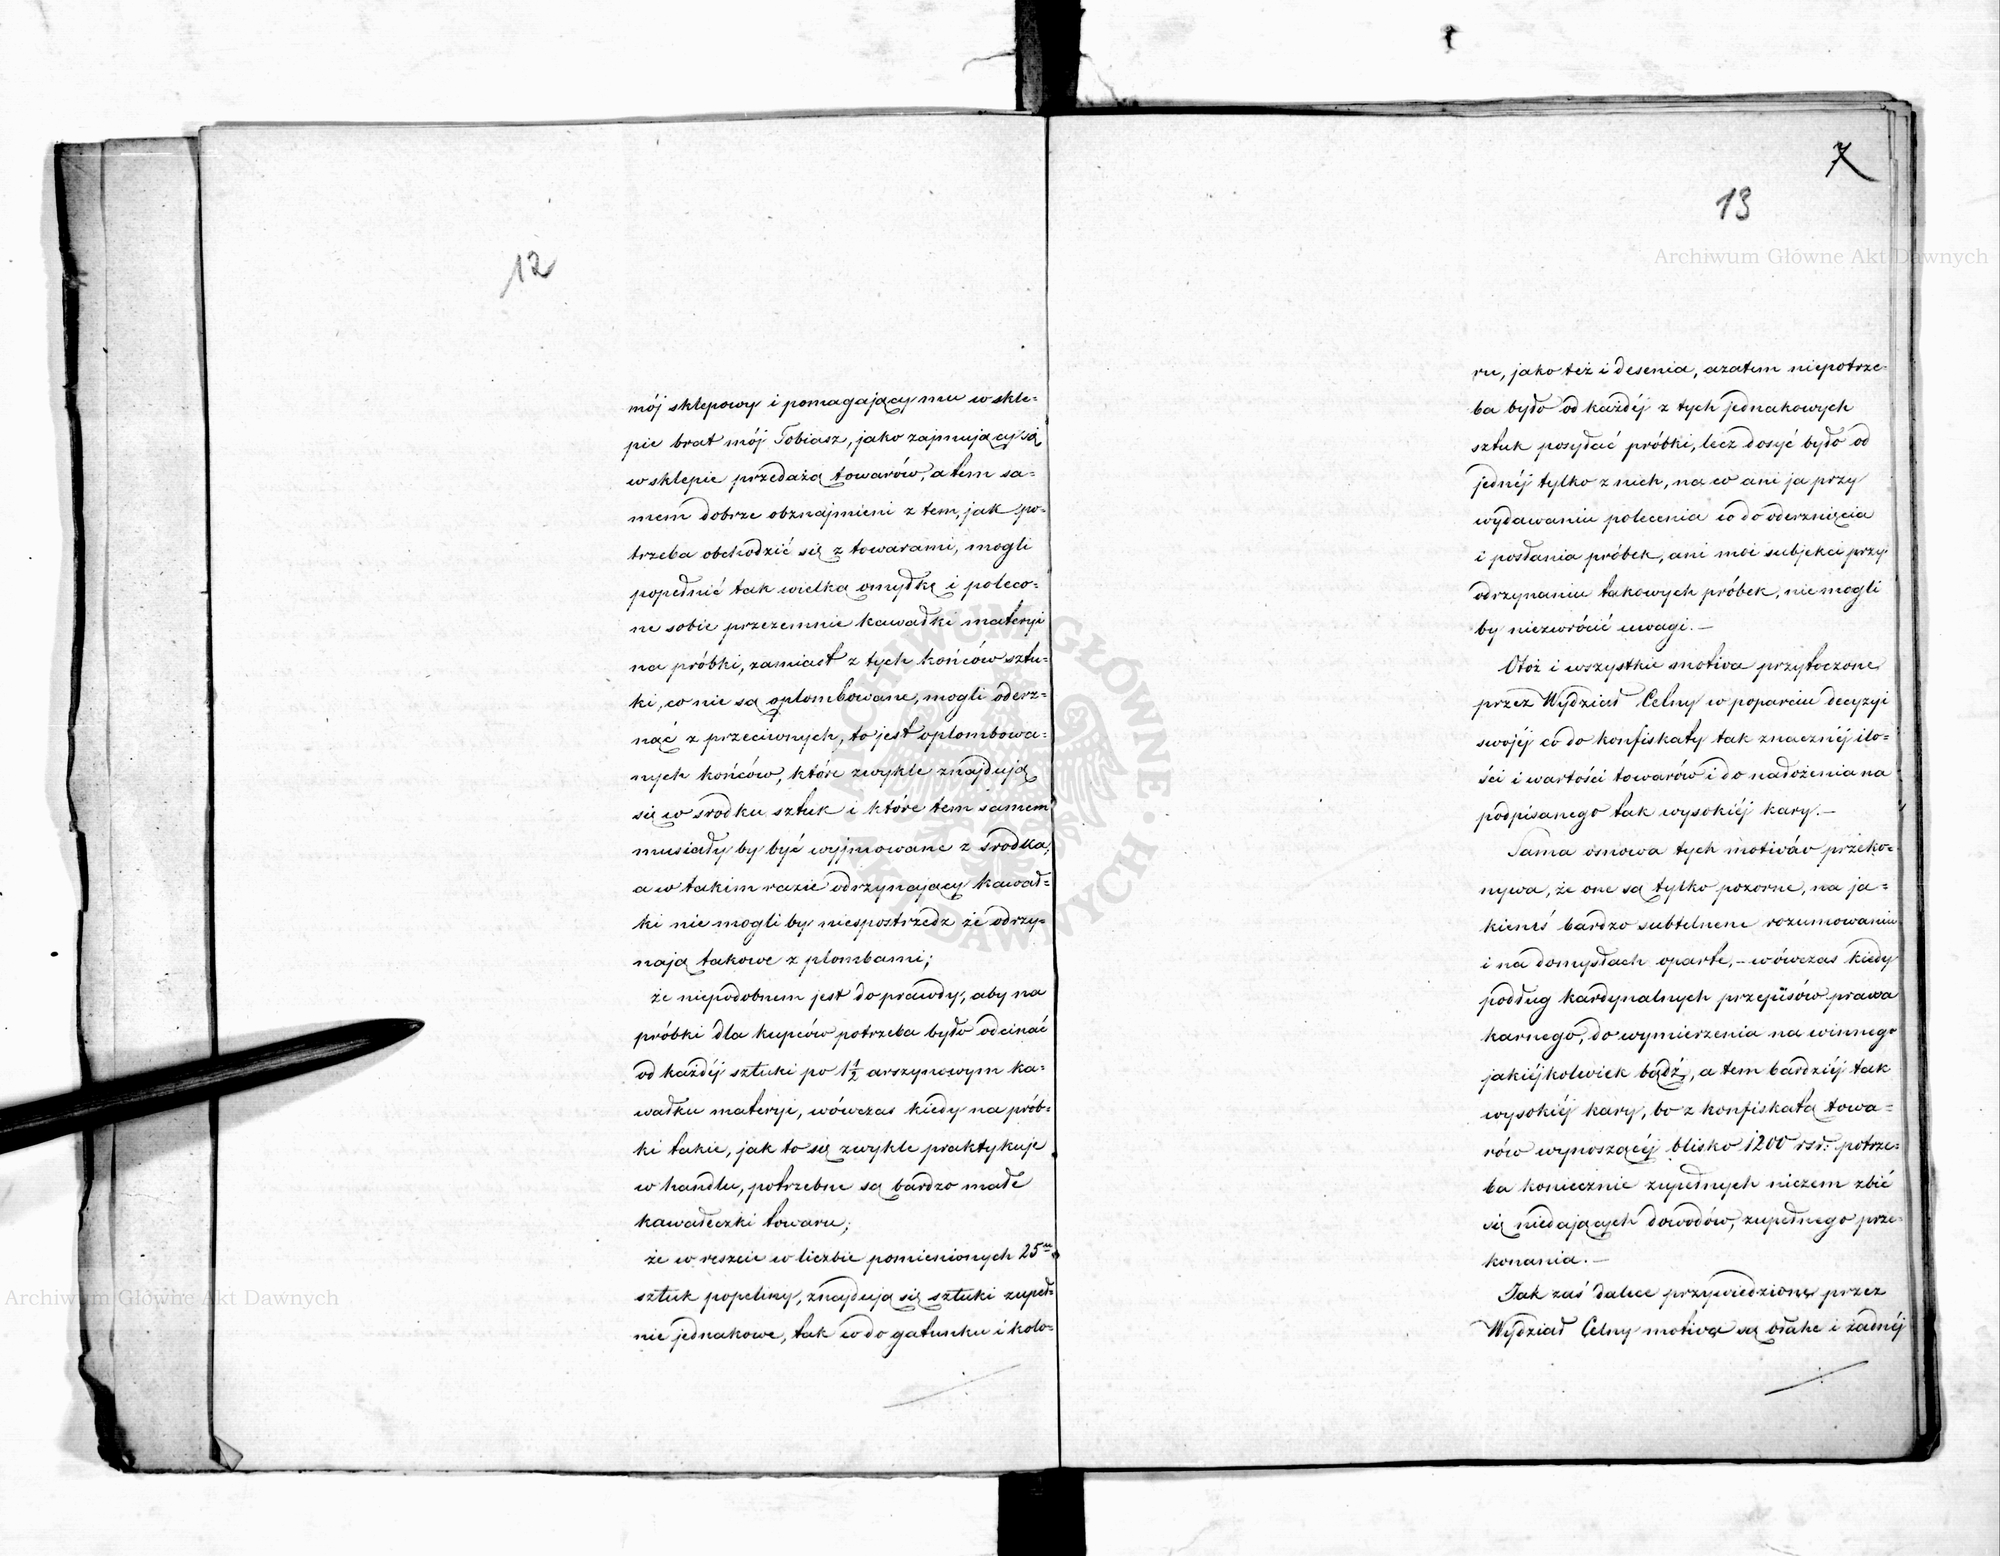 12
mój sklepowy i pomagający mu w skle-
pie brat mój Tobiasz, jako zajmujący się
w sklepie przedażą towarów, a tem sa-
mem dobrze obznajmieni z tem, jak po-
trzeba obchodzić się z towarami, mogli
popełnić tak wielką omyłkę i poleco-
ne sobie przezemnie kawałki materyi
na próbki, zamiast z tych końców sztu-
ki, co nie są oplombowane, mogli oderz-
nąć z przeciwnych, to jest oplombowa-
nych końców, które zwykle znajdują
się w srodku sztuk i które tem samem
musiały by być wyjmowane z srodka;
a w takim razie odrzynający kawał-
ki nie mogli by niespostrzedz że odrzy-
nają takowe z plombami;
że niepodobnem jest do prawdy, aby na
próbki dla kupców potrzeba było odcinać
od każdéj sztuki po 1½ arszynowym ka-
wałku materyi, wówczas kiedy na prób-
ki takie, jak to się zwykle praktykuje
w handlu, potrzebne są bardzo małe
kawałeczki towaru;
że w reszcie w liczbie pomienionych 25
sztuk popeliny, znajdują się sztuki zupeł-
nie jednakowe, tak co do gatunku i kolo-
7
13
ru, jako też i desenia, azatem niepotrze-
ba było od każdéj z tych jednakowych
sztuk posyłać próbki, lecz dosyć było od
jednéj tylko z nich, na co ani ja przy
wydawaniu polecenia co do oderznięcia
i posłania próbek, ani moi subjekci przy
odrzynaniu takowych próbek, nie mogli
by niezwrócić uwagi. —
Otoż i wszystkie motiva przytoczone
przez Wydział Celny w poparciu decyzyi
swojéj co do konfiskaty tak znacznéj ilo-
ści i wartości towarów i do nałożenia na
podpisanego tak wysokiéj kary. —
Sama osnowa tych motivów przeko-
nywa, że one są tylko pozorne, na ja-
kiemś bardzo subtelnem rozumowaniu
i na domysłach oparte, – wówczas kiedy
podług kardynalnych przepisów prawa
karnego, do wymierzenia na winnego
jakiéjkolwiek bądź, a tem bardziéj tak
wysokiéj kary, bo z konfiskatą towa-
rów wynoszącéj blisko 1200 rsr: potrze-
ba koniecznie zupełnych niczem zbić
się niedających dowodów, zupełnego prze-
konania. —
Jak zaś dalece przywiedzione przez
Wydział Celny motiva są błahe i żadnéj
Archiwum Główne Akt Dawnych
Archiwum Główne Akt Dawnych
ARCHIWUM GŁÓWNE AKT DAWNYCH